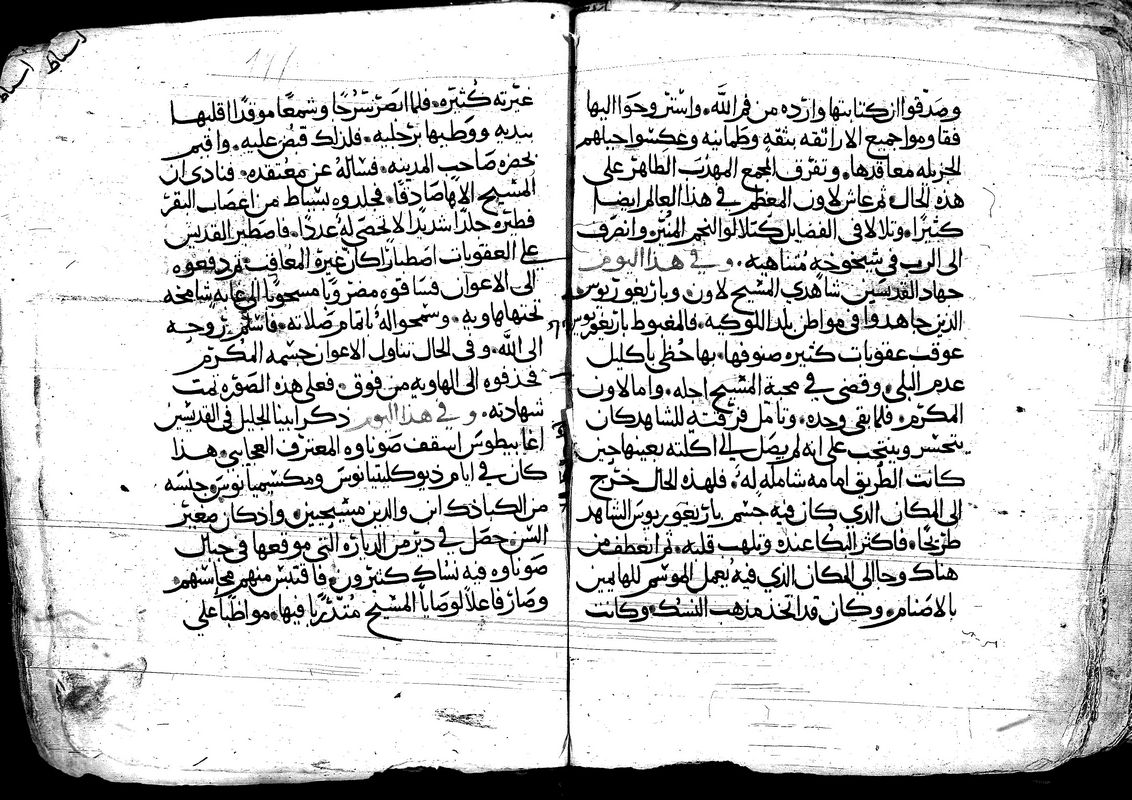 وصدقوا ان كتابتها وارده من فم الله. واستروحوا اليها
فقاوموا جميع الاراتقه بثقه وطمانيه وعكسوا حيلهم
الجزيله معاقدها. وتفرق المجمع المهذب الطاهر على
هذه الحال ثم عاش لاون المعظم في هذا العالم ايضا
كثيرا. وتلالا في الفضايل كتلالو النجم المنير. وانصرف
الى الرب في شيخوخه متناهيه. وفي هذا اليوم
جهاد القديسين شاهدي المسيح لاون وباريغوريوس
الذين جاهدوا في مواطن بلد اللوكيه. فالمغبوط باريغوريوس
عوقب عقوبات كثيره صنوفها. بها حظي باكليل
عدم البلى. وقضى في محبة المسيح اجله. واما لاون
المكرم. فلما بقي وحده. وتامل فرقته للشاهد كان
يتحسر وينتحب على انه لم يصل الى اكلته بعينها حين
كانت الطريق امامه شامله له. فلهذه الحال خرج
الى المكان الذي كان فيه جسم باريغوريوس الشاهد
طريحا. فاكثر البكا عنده وتلهب قلبه. ثم انعطف من
هناك وجا الى المكان الذي فيه يعمل الموسم للهايمين
بالاصنام. وكان قد اتخذ مذهب النسك. وكانت
غيرته كثيره. فلما ابصر سرجا وشمعا موقدا اقلبها
بيديه ووطيها برجليه. فلذلك قبض عليه. واقيم
بحضره صاحب المدينه. فساله عن معتقده. فنادى ان
المسيح الاها صادقا. فجلدوه بسياط من اعصاب البقر
فطيره جلدا شديدا لا تحصى له عددا. فاصطبر القديس
على العقوبات اصطبارا كان غيره المعاقب. ثم دفعوه
الى الاعوان فساقوه مضروبا مسحوبا الى غابه شامخه
تحتها هاويه. وسمحوا له باتمام صلاته. فاسلم روحه
الى الله. وفي الحال تناول الاعوان جسمه المكرم
فحذفوه الى الهاويه من فوق. فعلى هذه الصوره تمت
شهادته. وفي هذا اليوم ذكر ابينا الجليل في القديسين
اغابيطوس اسقف صوناوه المعترف العجايبي. هذا
كان في ايام ديوكليتيانوس ومكسيميانوس وجنسه
من الكباذك ابن والدين مسيحيين. واذ كان صغير
السن حصل في دير من الدياره التي موقعها في جبال
صوناوه فيه نساك كثيرون. فاقتبس منهم محاسنهم
وصار فاعلا لوصايا المسيح متدربا فيها. مواظبا على